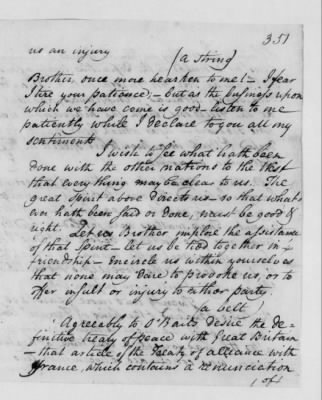 351
us an injury
(a String)
Brother, once more hearken to me! — I fear
I tire your patience; — but as the business upon
which we have come is good — listen to me
patiently while I declare to you all my
sentiments
I wish to see what hath been
done with the other nations to the West
that everything may be clear to us. The
great Spirit above directs us — so that what-
ever hath been said or done, must be good &
right. Let us Brother implore the assistance
of that Spirit — let us be tied together in
friendship — Encircle us within yourselves
that none may dare to provoke us, or to
offer insult or injury to either party.
(a belt
Agreeably to O'Bail's desire the de-
finitive treaty of peace with Great Britain
— that article of the Treaty of alliance with
France, which contains a renunciation
of